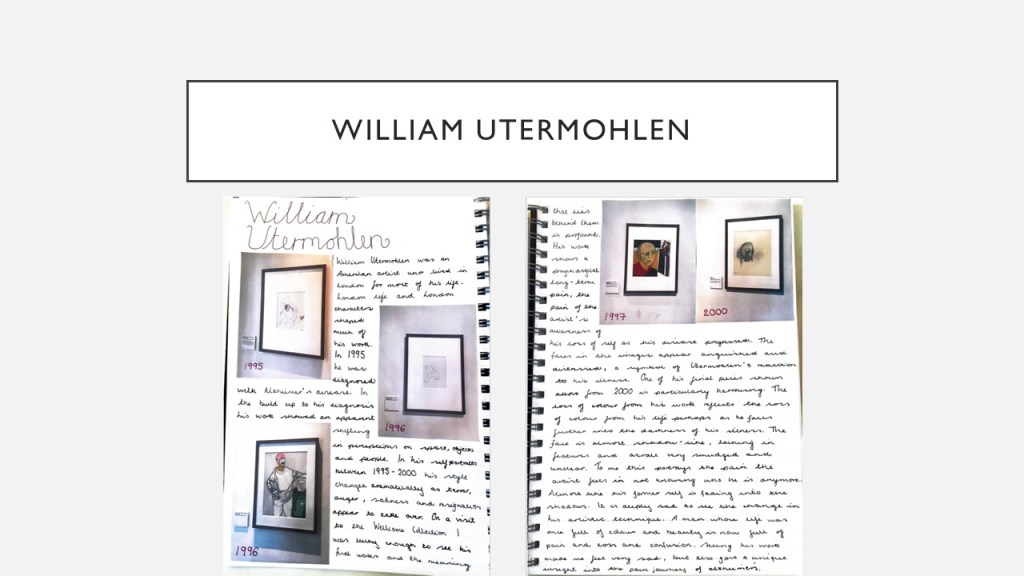 WILLIAM UTERMOHLEN
William
Utermohlen
William Utermohlen was an
American artist who lived in
London for most of his life.
London life and London
characters
showed
much of
his work.
In 1995
he was
diagnosed
1995
with Alzheimer's disease. In
the build up to his diagnosis
his work showed an apparent
shifting
1996
in perceptions on space, objects
and people. In his self-portraits
between 1995-2000 his style
changes dramatically as terror,
anger, sadness and resignation
appear to take over. On a visit
to the Wellcome Collection I
was lucky enough to see his
final works and the meaning
1996
that lies
behind them
is profound.
His work
shows a
psychological
long-term
pain, the
pain of the
artist's
awareness of
1997
2000
his loss of self as his disease progressed. The
faces in the images appear anguished and
distressed, a symbol of Utermohlen's reaction
to his illness. One of his final pieces shown
above from 2000 is particularly harrowing. The
loss of colour from his work reflects the loss
of colour from his life perhaps as he falls
further into the darkness of his illness. The
face is almost shadow-like, lacking in
features and overall very smudged and
unclear. To me this portrays the pain the
artist feels in not knowing who he is anymore.
Almost like his former self is fading into the
shadows. It is deeply sad to see the change in
his artistic technique. A man whose life was
once full of colour and beauty is now full of
pain and loss and confusion. Seeing his work
made me feel very sad, but also gave a unique
insight into the pain journey of alzheimers.